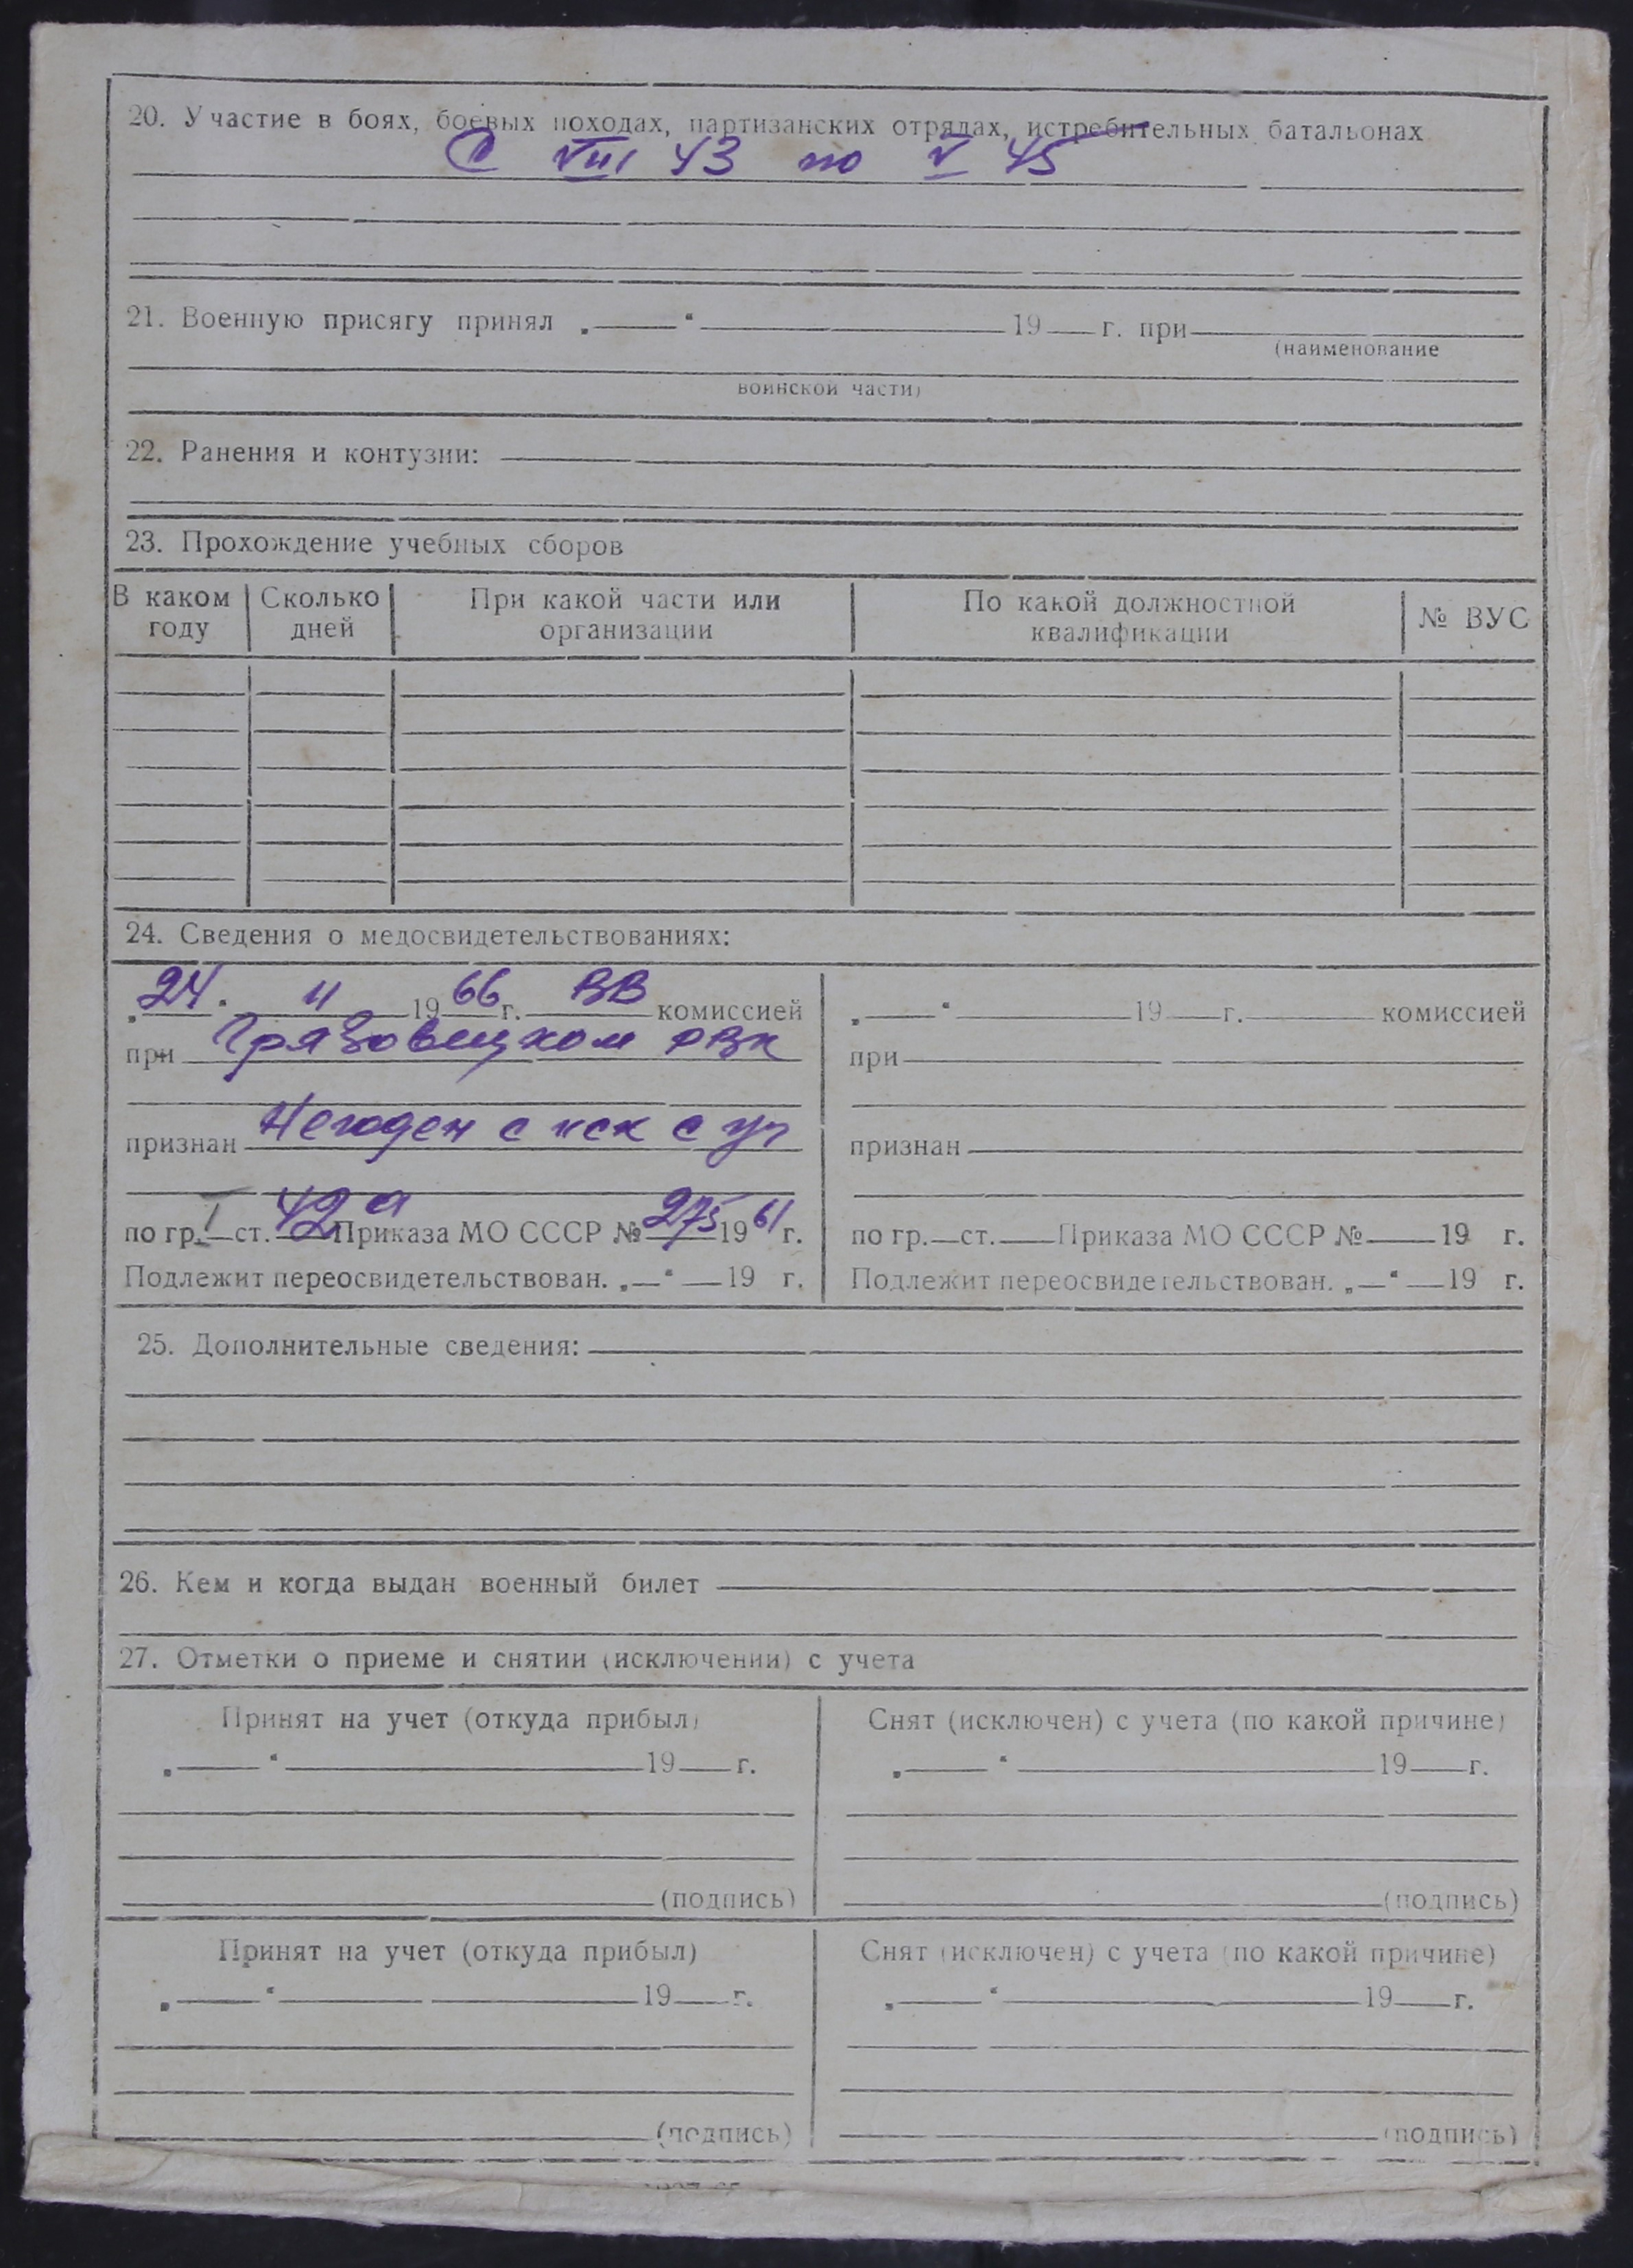 20. Участие в боях, боевых походах, партизанских отрядах, истребительных батальонах
С VIII 43 по V 45
21. Военную присягу принял „ “ 19 г. при
(наименование
воинской части)
22. Ранения и контузии:
23. Прохождение учебных сборов
В каком году Сколько дней При какой части или организации По какой должностной квалификации № ВУС
24. Сведения о медосвидетельствованиях:
„24“ 11 1966 г. ВВ комиссией
при Грязовецком РВК
признан Негоден с иск с уч
по гр. I ст. 42а Приказа МО СССР № 275 1961 г.
Подлежит переосвидетельствован. „ “ 19 г.
„ “ 19 г. комиссией
при
признан
по гр. ст. Приказа МО СССР № 19 г.
Подлежит переосвидетельствован. „ “ 19 г.
25. Дополнительные сведения:
26. Кем и когда выдан военный билет
27. Отметки о приеме и снятии (исключении) с учета
Принят на учет (откуда прибыл) Снят (исключен) с учета (по какой причине)
„ “ 19 г. „ “ 19 г.
(подпись) (подпись)
Принят на учет (откуда прибыл) Снят (исключен) с учета (по какой причине)
„ “ 19 г. „ “ 19 г.
(подпись) (подпись)